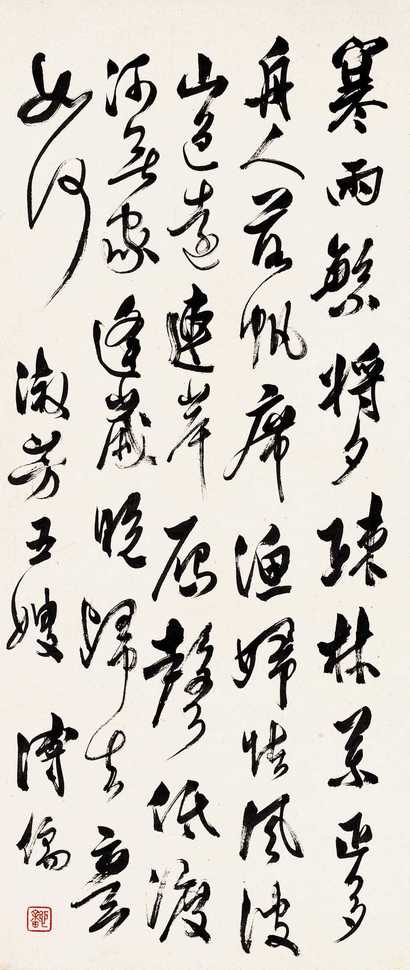 寒雨繁將夕疎林葉正多
舟人落帆席漁婦怯風波
山色遠連岸雁聲低渡
河無家逢歲晚歸去意
如何
淑芳五嫂 溥儒